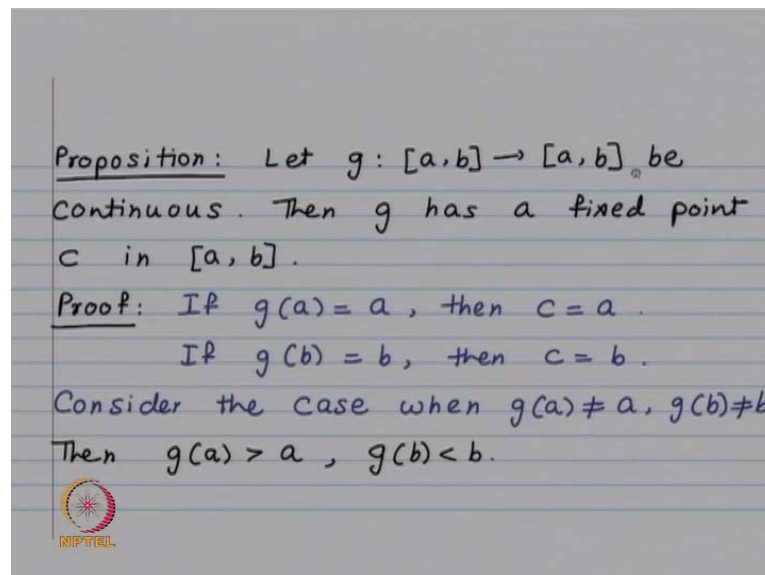 Proposition: Let g : [a, b] → [a, b] be
continuous. Then g has a fixed point
c in [a, b].
Proof: If g(a) = a, then c = a.
If g(b) = b, then c = b.
Consider the case when g(a) ≠ a, g(b) ≠ b
Then g(a) > a, g(b) < b.
NPTEL